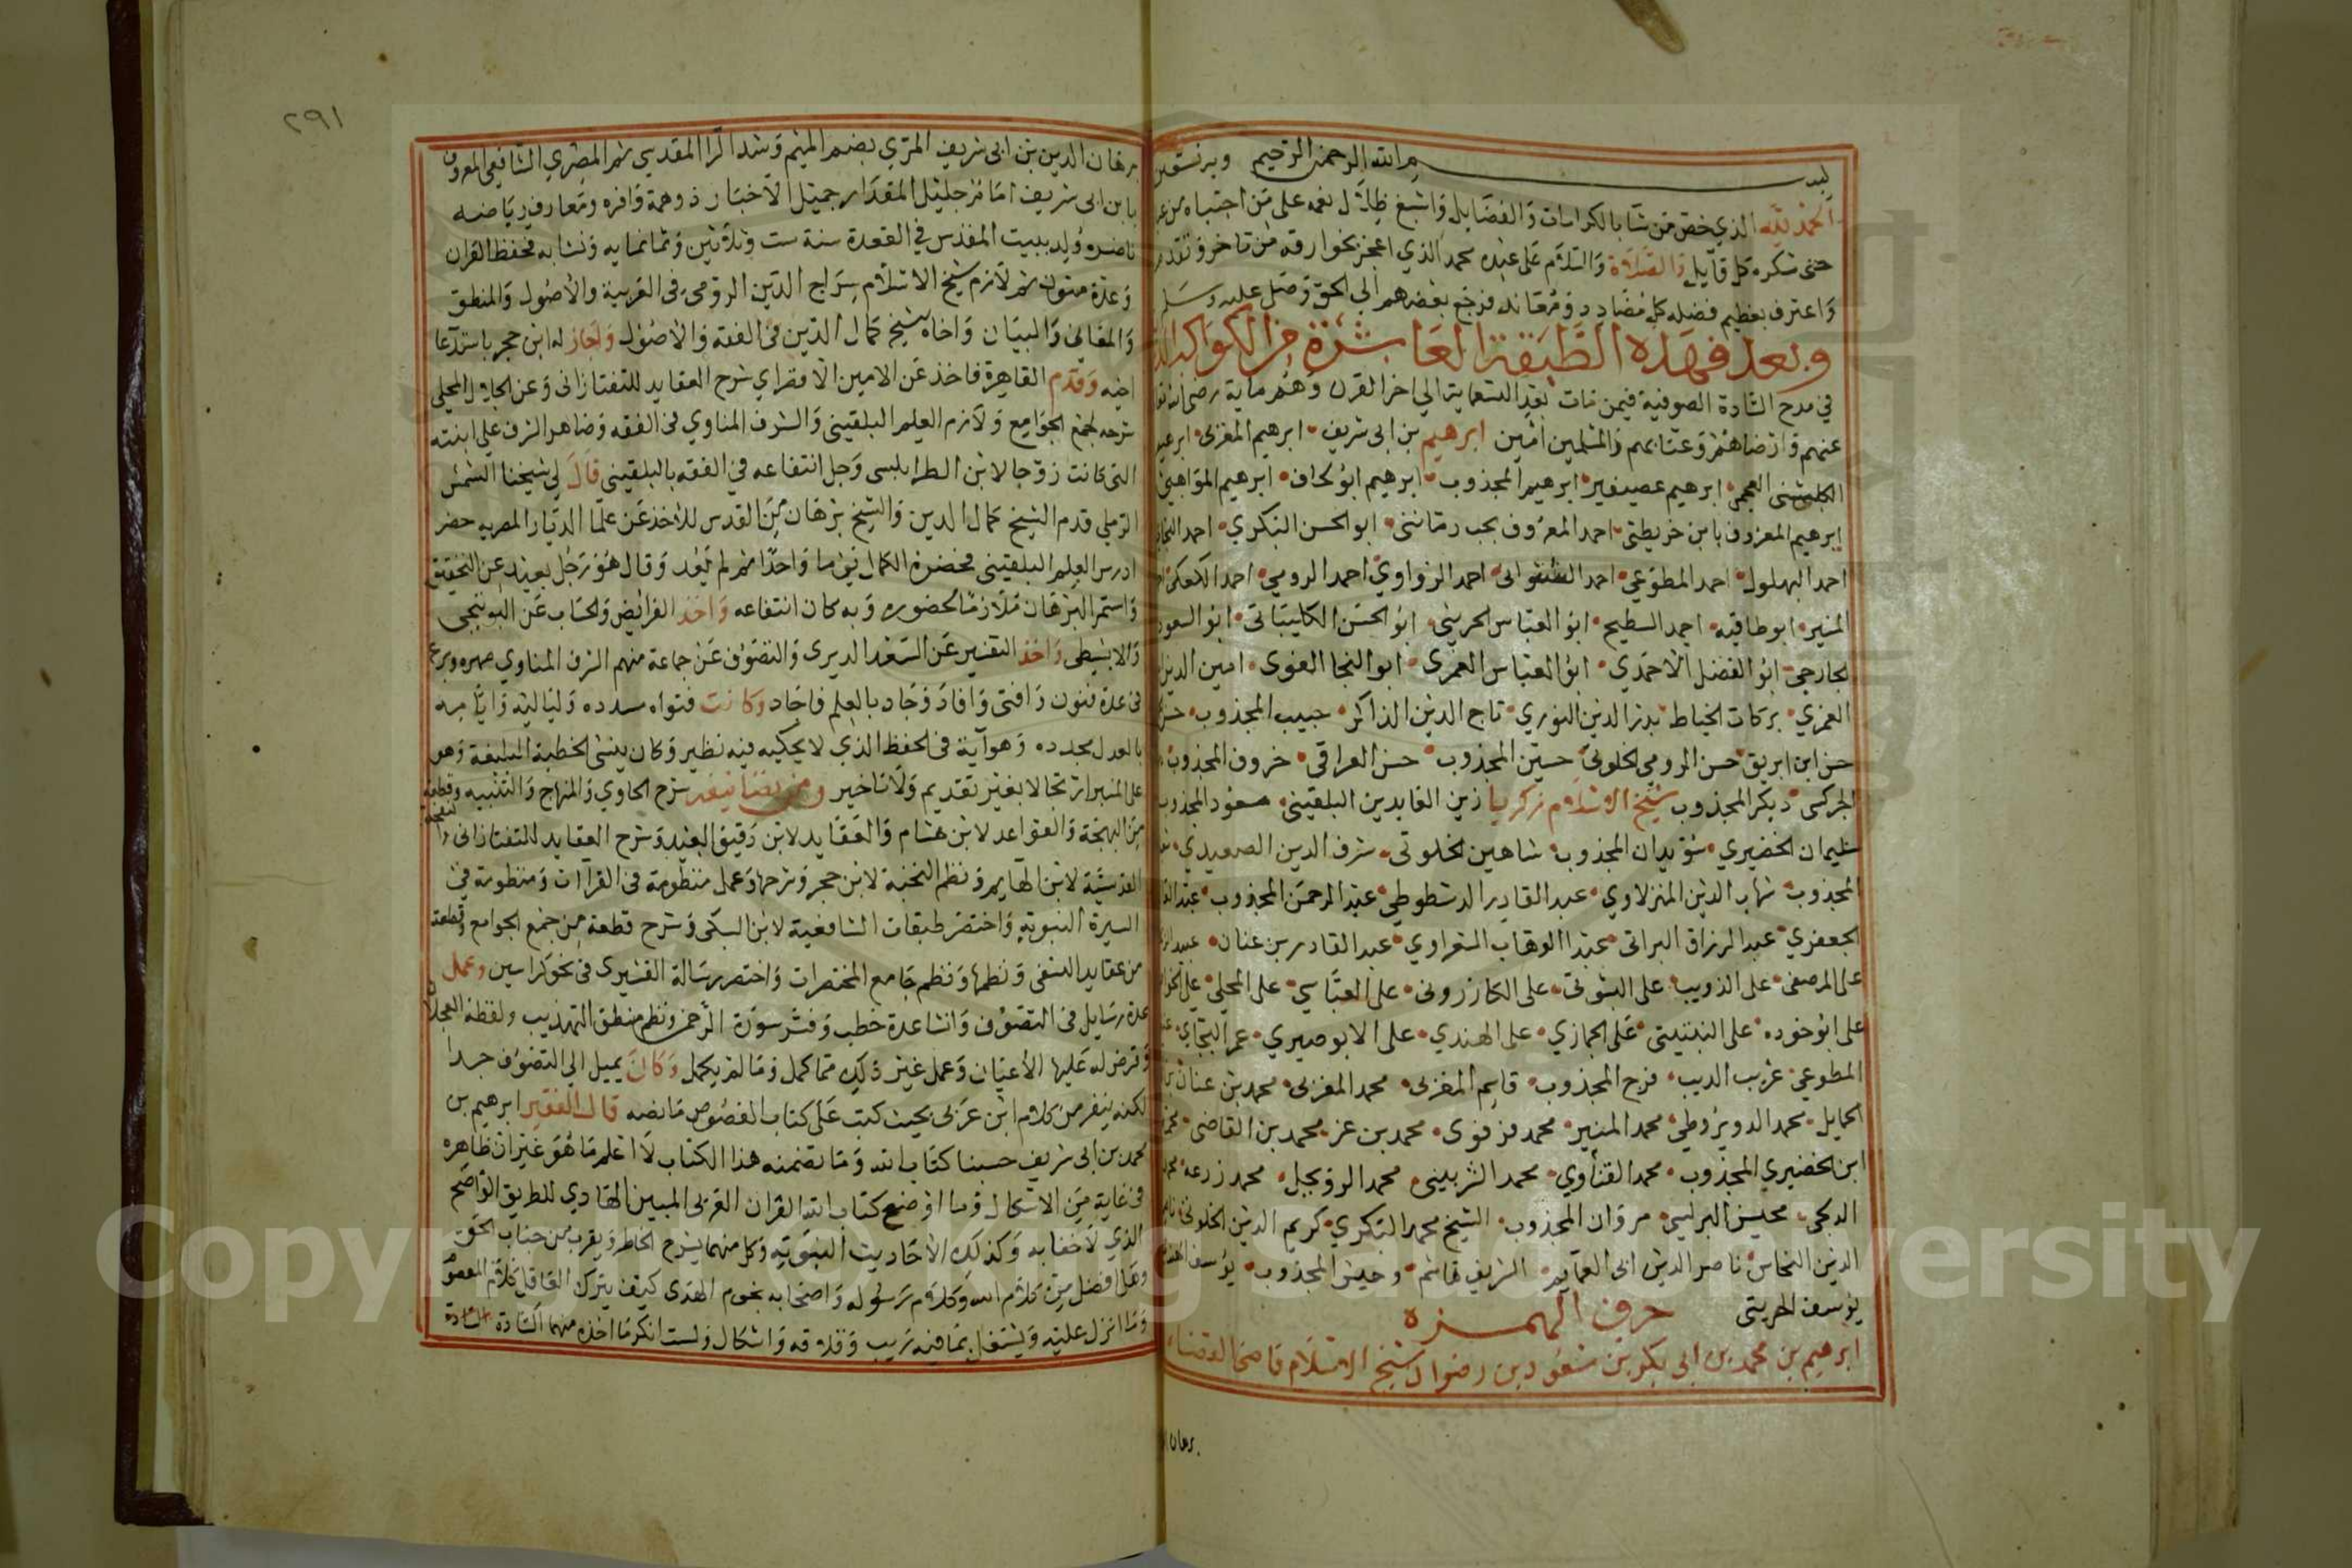 بسم الله الرحمن الرحيم وبه نستعين
الحمد لله الذي خص من شا بالكرامات والفضايل واسبغ ظلال نعمه على من اجتباه من
حتى شكره كل قايل والصلاة والسلام على عبده محمد الذي اعجز بخوارقه من تاخر وتقدم
واعترف بعظيم فضله كل مضادد ومعاند فرجع بعضهم الى الحق وصلى عليه وسلم
وبعد فهذه الطبقة العاشرة من الكواكب
في مدح السادة الصوفية فيمن مات بعد التسعماية الى اخر القرن وهم ماية رضي الله
عنهم وارضاهم وعنا بهم والمسلمين امين ابرهيم بن ابي شريف ابرهيم المغربي
الكلشنى العجمي ابرهيم عصيفير ابرهيم المجذوب ابرهيم ابو لحاف ابرهيم المواهبي
ابرهيم المعروف بابن خريطتي احمد المعروف بحب رمانتي ابو الحسن البكري احمد
احمد البهلول احمد المطوعي احمد احمد الزواوي احمد الرومي احمد الكعكي
المنير ابو طاقيه احمد السطيح ابو العباس الحريثي ابو الحسن الكليباتي ابو السعود
الجارحي ابو الفضل الاحمدي ابو العباس الغمري ابو النجا الفوى امين الدين
الغمري بركات الخياط بدر الدين النوري تاج الدين الذاكر حبيب المجذوب
حسن ابن ابريق حسن الرومي الخلوتى حسين المجذوب حسن العراقي خروف المجذوب
الجركسي ديكر المجذوب شيخ الاسلام زكريا زين العابدين البلقيني مسعود المجذوب
سليمان الخضيري سويدان المجذوب شاهين الخلوتى شرف الدين الصعيدي
المجذوب شهاب الدين المنزلاوي عبد القادر الدشطوطي عبد الرحمن المجذوب
الجعفري عبد الرزاق الترابي عبد الوهاب الشعراوي عبد القادر بن عنان
على المرصفي على الذويب على الكازروني على العباسي على المحلي على
على ابو خوده على النبتيتي على الجمازي على الهندي على الابوصيري عمر البجاي
المطوعي غريب الديب فرج المجذوب قايم المغربي محمد المغربي محمد بن عنان
الحمايل محمد الدويروطي محمد المنير محمد فرفوى محمد بن عز محمد بن القاضي
ابن الخضيري المجذوب محمد القناوي محمد الشربيني محمد الرويجل محمد زرعه
الدلجي محيسن البرلسي مروان المجذوب الشيخ محمد البكري كريم الدين الخلوتى
الدين النحاس ناصر الدين ابى العمايم الشريف هاشم وحيش المجذوب يوسف
يوسف الحريثي حرف الهمزه
ابرهيم بن محمد بن ابى بكر بن مسعود بن رضوان شيخ الاسلام قاضي القضاه
برهان
٢٩١
برهان الدين بن ابى شريف المرى بضم الميم وشد الرا المقدسي ثم المصري الشافعي المعروف
بابن ابى شريف امام جليل المقدار جميل الاخبار ذو همة وافره ومعارف رياضه
ناضره ولد ببيت المقدس في القعدة سنة ست وثلاثين وثمانمايه ونشا به فحفظ القران
وعدة متون ثم لازم شيخ الاسلام سراج الدين الرومي في العربية والاصول والمنطق
والمعاني والبيان واخاه شيخ كمال الدين في الفقه والاصول واجاز له ابن حجر باستدعا
اخيه وقدم القاهرة فاخذ عن الامين الاقصراي شرح العقايد للتفتازانى وعن الجلال المحلي
شرحه لجمع الجوامع ولازم العلم البلقيني والشرف المناوي في الفقه وصاهر الشرف على ابنته
التي كانت زوجا لابن الطرابلسى وجل انتفاعه في الفقه بالبلقيني قال لي شيخنا الشمس
الرملي قدم الشيخ كمال الدين والشيخ برهان من القدس للاخذ عن علما الديار المصريه حضر
درس العلم البلقيني فحضره الكمال يوما واحدا ثم لم يعد وقال هو رجل بعيد عن التحقيق
واستمر البرهان ملازما لحضوره وبه كان انتفاعه واخذ الفرايض والحساب عن البوتيجي
والابشيطى واخذ التفسير عن السعد الديرى والتصوف عن جماعة منهم الشرف المناوي صهره وبرع
في عدة فنون وافتى وافاد وجاد بالعلم فاجاد وكانت فتواه مسدده ولياليه وايامه
بالعدل مجدده وهو آية في الحفظ الذي لا يحكيه فيه نظير وكان ينشى الخطبة البليغة وهو
على المنبر ارتجالا بغير تقديم ولا تاخير ومن تصانيفه شرح الحاوي والمنهاج والتنبيه وقطعة
من البهجة والقواعد لابن هشام والعقايد لابن دقيق العيد وشرح العقايد للتفتازانى
القدسية لابن الهايم ونظم النخبة لابن حجر وشرحها وعمل منظومة في القراآت ومنظومة في
السيرة النبوية واختصر طبقات الشافعية لابن السبكى وشرح قطعة من جمع الجوامع وقطعة
من عقايد النسفى ونظمها ونظم جامع المختصرات واختصر رسالة القشيرى في نحو كراسين وعمل
عدة رسايل في التصوف وانشا عدة خطب وفسر سورة الرحمن ونظم منطق التهذيب ولقطة العجلان
وقرض له عليها الاعيان وعمل غير ذلك مما كمل وما لم يكمل وكان يميل الى التصوف جدا
لكنه ينفر من كلام ابن عربى بحيث كتب على كتاب الفصوص ما نصه قال الفقير ابرهيم بن
محمد بن ابى شريف حسبنا كتاب الله وما تضمنه هذا الكتاب لا اعلم ما هو غير ان ظاهره
في غاية من الاشكال وما اوضح كتاب الله القران العربى المبين الهادي للطريق الواضح
الذي لا خفا به وكذلك الاحاديث النبوية وكل منهما يشرح الخاطر ويقرب من جناب الحق
وهل افضل من كلام الله وكلام رسوله واصحابه نجوم الهدى كيف يترك العاقل كلام المعصوم
وما انزل عليه ويشتغل بما فيه ريب وقلاقه واشكال ولست انكر ما اخذه منهما السادة
Copyright © King Saud University